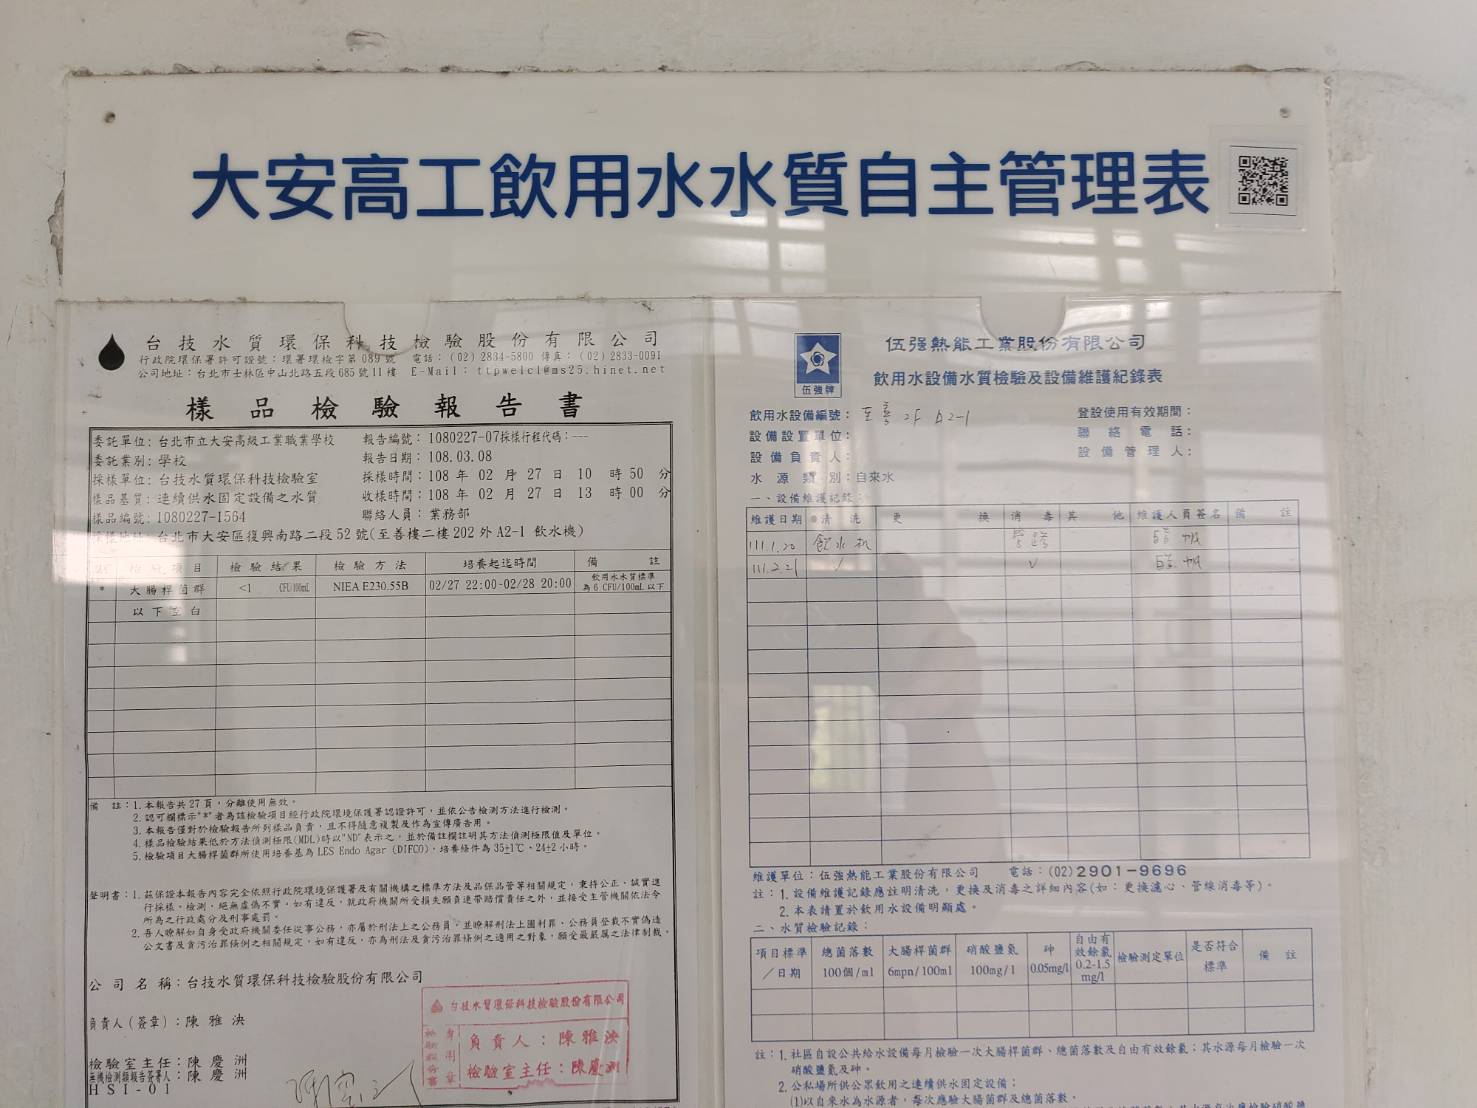 大安高工飲用水水質自主管理表
台技水質環保科技檢驗股份有限公司
行政院環保署許可證號：環署環檢字第089號 電話：(02)2834-5800 傳真：(02)2833-0091
公司地址：台北市士林區中山北路五段685號11樓 E-Mail：ttpwelcl@ms25.hinet.net
樣品檢驗報告書
委託單位：台北市立大安高級工業職業學校 報告編號：1080227-07採樣行程代碼：---
委託業別：學校 報告日期：108.03.08
採樣單位：台技水質環保科技檢驗室 採樣時間：108 年 02 月 27 日 10 時 50 分
樣品基質：連續供水固定設備之水質 收樣時間：108 年 02 月 27 日 13 時 00 分
樣品編號：1080227-1564 聯絡人員：業務部
採樣地址：台北市大安區復興南路二段52號(至善樓二樓202外A2-1 飲水機)
檢驗項目 檢驗結果 檢驗方法 培養起迄時間 備註
* 大腸桿菌群 <1 CFU/100mL NIEA E230.55B 02/27 22:00-02/28 20:00 飲用水水質標準
為6 CFU/100mL以下
以下空白
備註：1.本報告共27頁，分離使用無效。
2.認可欄標示"*"者為該檢驗項目經行政院環境保護署認證許可，並依公告檢測方法進行檢測。
3.本報告僅對於檢驗報告所列樣品負責，且不得隨意複製及作為宣傳廣告用。
4.樣品檢驗結果低於方法偵測極限(MDL)時以"ND"表示之，並於備註欄註明其方法偵測極限值及單位。
5.檢驗項目大腸桿菌群所使用培養基為LES Endo Agar (DIFCO)，培養條件為35±1℃、24±2小時。
聲明書：1.茲保證本報告內容完全依照行政院環境保護署及有關機構之標準方法及品保品管等相關規定，秉持公正、誠實進
行採樣、檢測。絕無虛偽不實，如有違反，就政府機關所受損失願負連帶賠償責任之外，並接受主管機關依法令
所為之行政處分及刑事處罰。
2.吾人瞭解如自身受政府機關委任從事公務，亦屬於刑法上之公務員，並瞭解刑法上圖利罪、公務員登載不實偽造
公文書及貪污治罪條例之相關規定，如有違反，亦為刑法及貪污治罪條例之適用之對象，願受最嚴厲之法律制裁。
公司名稱：台技水質環保科技檢驗股份有限公司
負責人(簽章)：陳雅泱
檢驗室主任：陳慶洲
無機檢測類報告簽署人：陳慶洲
HSI-01
台技水質環保科技檢驗股份有限公司
負責人：陳雅泱
檢驗室主任：陳慶洲
伍強牌
伍強熱能工業股份有限公司
飲用水設備水質檢驗及設備維護紀錄表
飲用水設備編號：至善 2F A2-1 登設使用有效期間：
設備設置單位： 聯絡電話：
設備負責人： 設備管理人：
水源類別：自來水
一、設備維護記錄：
維護日期 清洗 更換 消毒 其他 維護人員簽名 備註
111.1.20 飲水机
111.2.21 ✓ ✓
維護單位：伍強熱能工業股份有限公司 電話：(02)2901-9696
註：1.設備維護記錄應註明清洗，更換及消毒之詳細內容(如：更換濾心、管線消毒等)。
2.本表請置於飲用水設備明顯處。
二、水質檢驗記錄：
項目標準／日期 總菌落數 100個/ml 大腸桿菌群 6mpn/100ml 硝酸鹽氮 100mg/l 砷 0.05mg/l 自由有效餘氯 0.2-1.5 mg/l 檢驗測定單位 是否符合標準 備註
註：1.社區自設公共給水設備每月檢驗一次大腸桿菌群、總菌落數及自由有效餘氯；其水源每月檢驗一次
硝酸鹽氮及砷。
2.公私場所供公眾飲用之連續供水固定設備：
(1)以自來水為水源者，每次應驗大腸菌群及總菌落數。